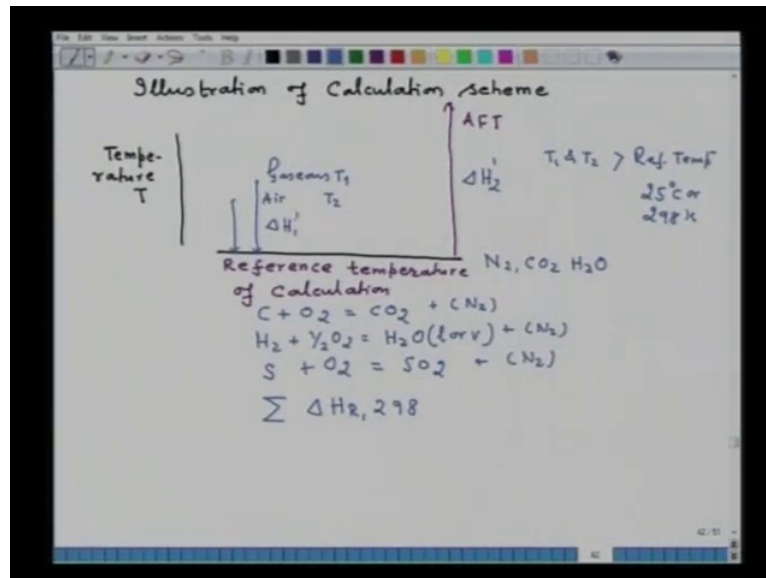 File Edit View Insert Actions Tools Help
Illustration of Calculation scheme
Tempe-
rature
T
Gaseous T1
Air T2
ΔH1'
AFT
ΔH2'
T1 & T2 > Ref. Temp
25°C or
298 K
Reference temperature
of calculation
N2, CO2 H2O
C + O2 = CO2 + (N2)
H2 + 1/2 O2 = H2O (l or v) + (N2)
S + O2 = SO2 + (N2)
Σ ΔHR, 298
42/51
42